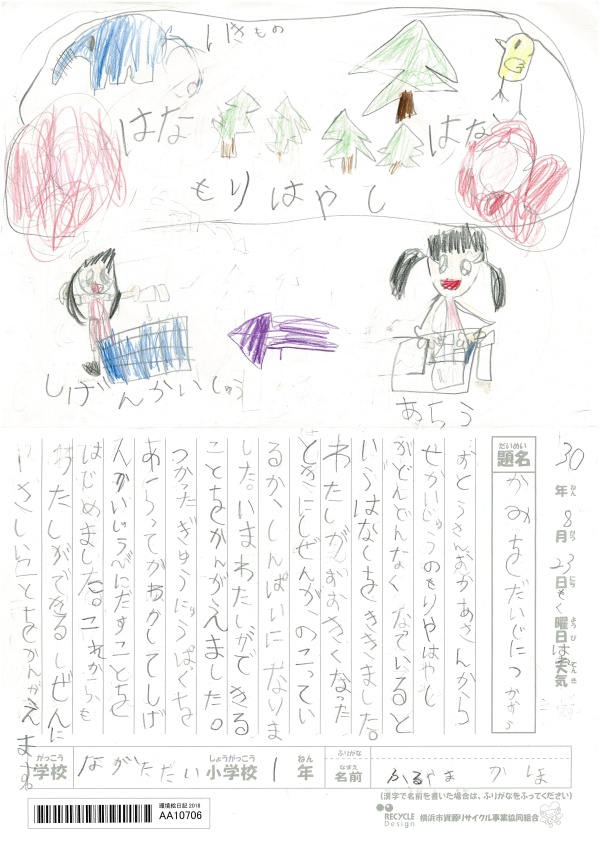 いきもの
はな
はな
もりはやし
しげんかいしゅう
あらう
30年8月23日もく曜日 天気
ねん
がつ
にち
ようび
てんき
だいめい
題名
かみをだいじにつかおう
おとうさんおかあさんから
せかいじゅうのもりやはやし
がどんどんなくなていると
いうはなしをききました。
わたしがおおきくなった
ときにしぜんが、のこってい
るか、しんぱいになりま
した。いまわたしができる
ことをかんがえました。
つかったぎゅうにゅうぱくを
あらってかわかしてしげ
んかいしゅうべにだすことを
はじめました。これからも
わたしができるしぜんに
やさしいことをかんがえます。
がっこう
学校
ながただい
しょうがっこう
小学校
1
ねん
年
ふりがな
なまえ
名前
かほ
(漢字で名前を書いた場合は、ふりがなをふってください)
環境絵日記 2018
AA10706
RECYCLE Design
横浜市資源リサイクル事業協同組合